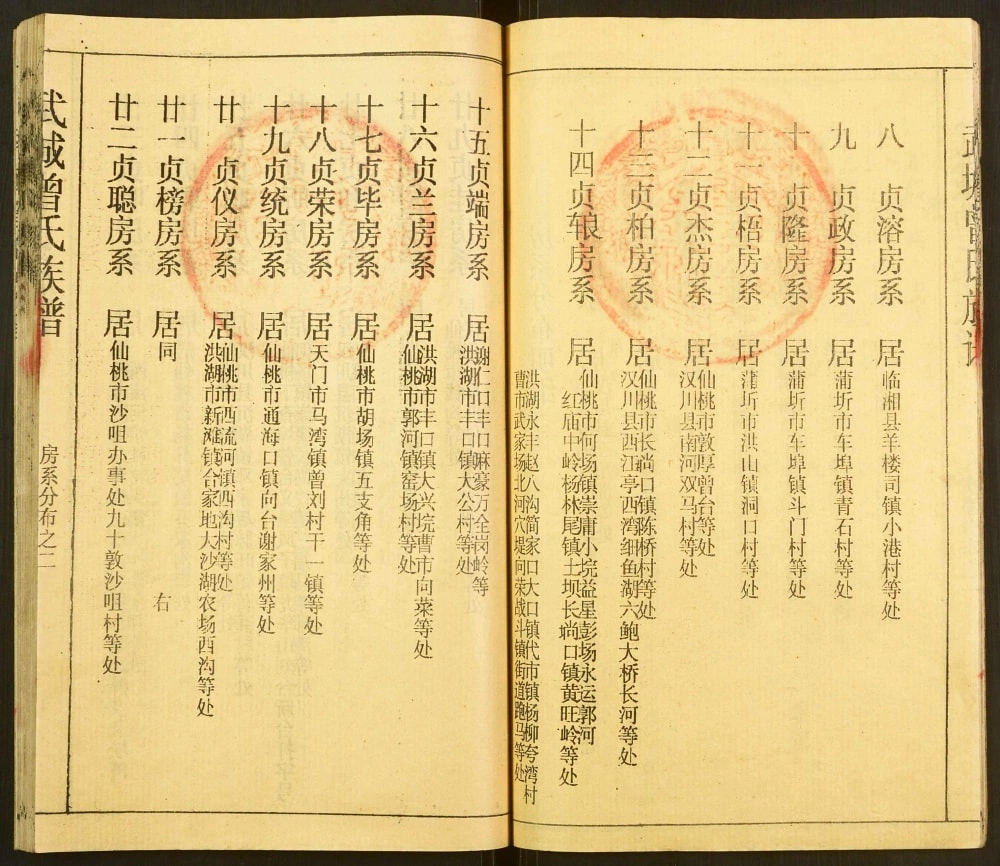 武城曾氏族谱
八 贞溶房系 居临湘县羊楼司镇小港村等处
九 贞政房系 居蒲圻市车埠镇青石村等处
十 贞隆房系 居蒲圻市车埠镇斗门村等处
十一贞梧房系 居蒲圻市洪山镇洞口村等处
十二贞杰房系 居仙桃市敦厚曾台等处
汉川县南河双马村等处
十三贞柏房系 居仙桃市长埫口镇陈桥村等处
汉川县西江亭西湾细鱼湖六鲍大桥长河等处
十四贞轅房系 居仙桃市何场镇崇庸小垸益星彭场永运郭河
红庙中岭杨林尾镇土坝长埫口镇黄旺岭等处
洪湖永丰赵八沟简家口大口镇代市镇杨柳夸湾村
曹市武家场北河穴堤向荣战斗镇街道跑马等处
十五贞端房系 居谢仁口丰口麻豪万全岗岭等
洪湖市丰口镇大公村等处
十六贞兰房系 居洪湖市丰口镇大兴垸曹市向菜等处
仙桃市郭河镇窑场村等处
十七贞毕房系 居仙桃市胡场镇五支角等处
十八贞荣房系 居天门市马湾镇曾刘村干一镇等处
十九贞统房系 居仙桃市通海口镇向台谢家州等处
廿 贞仪房系 居仙桃市西流河镇西沟村等处
洪湖市新滩镇合家地大沙湖农场西沟等处
廿一贞榜房系 居同 右
廿二贞聪房系 居仙桃市沙咀办事处九十敦沙咀村等处
武城曾氏族谱
房系分布之二